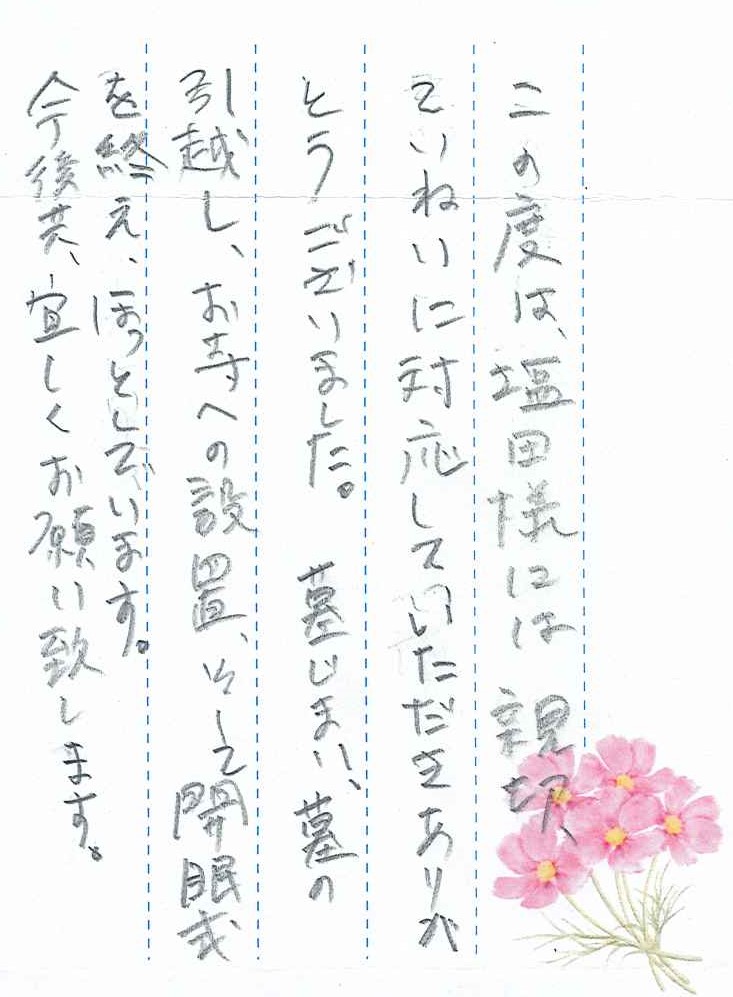 この度は、塩田様には 親切、
ていねいに対応していただきありが
とうございました。 墓じまい、墓の
引越し、お寺への設置、そして開眼式
を終え、ほっとしでいます。
今後共、宜しくお願い致します。